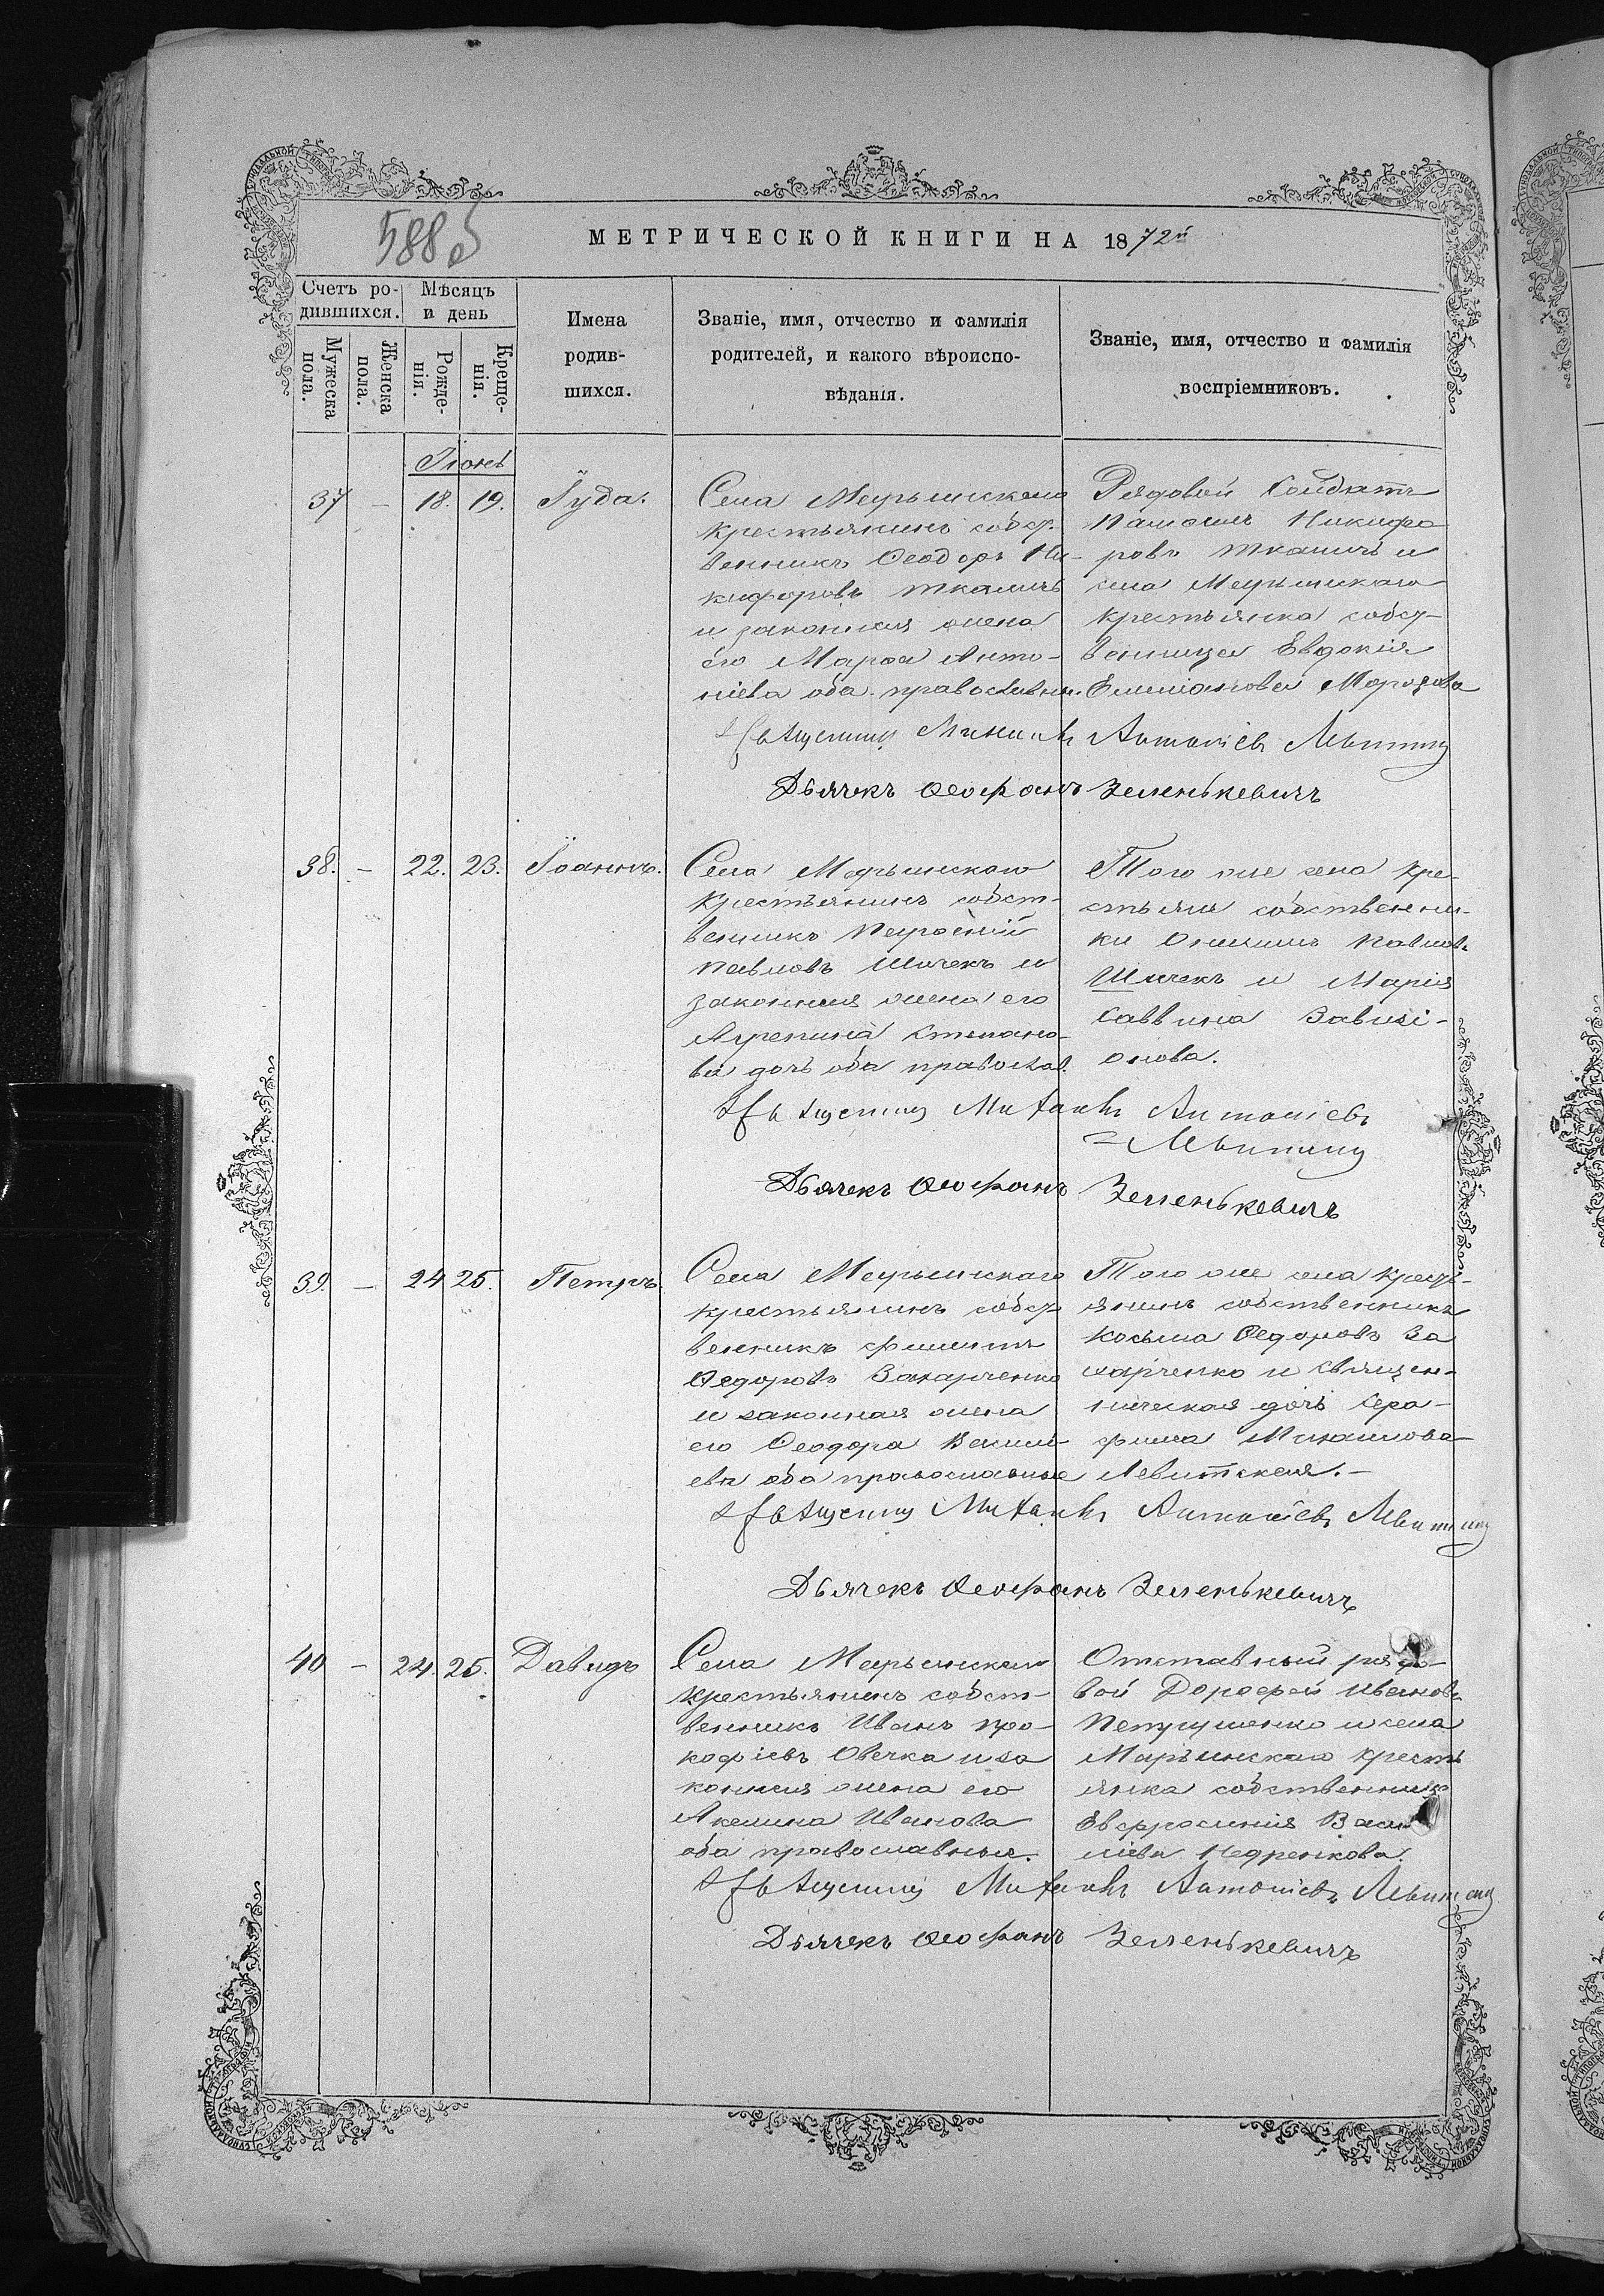 588
МЕТРИЧЕСКОЙ КНИГИ НА 1872й
Счетъ ро-
дившихся.
Мѣсяцъ
и день
Мужеска
пола.
Женска
пола.
Рожде-
нія.
Креще-
нія.
Имена
родив-
шихся.
Званіе, имя, отчество и фамилія
родителей, и какого вѣроиспо-
вѣданія.
Званіе, имя, отчество и фамилія
воспріемниковъ.
Іюнь
37 - 18. 19. Іуда.
Села
крестьянинъ собст-
венникъ Ѳеодоръ Ни-
кифоровъ Ткаличъ
и законная жена
его Марѳа Анто-
ніева оба православн.
Рядовой Солдатъ
Никифо
ровъ Ткаличъ и
села
крестьянка собст-
венница Евдокія
Емиліанова Морозова
Священникъ Михаилъ Антоніевъ
Дьячекъ Ѳеофанъ Зеленькевичъ
38. - 22. 23. Іоаннъ.
Села
крестьянинъ собст-
венникъ
Павловъ Шичекъ и
законная жена его
Агрепина Степано-
ва дочь оба православ.
Того же села кре-
стьяне собственни-
ки Онисимъ Павловъ
Шичекъ и Марія
Саввина Завизі-
онова.
Священникъ Михаилъ Антоніевъ
Дьячекъ Ѳеофанъ Зеленькевичъ
39. - 24. 25. Петръ.
Села
крестьянинъ собст-
венникъ Филиппъ
Ѳедоровъ Захарченко
и законная жена
его Ѳеодора
ева оба православные
Того же села кресть-
янинъ собственникъ
Косьма Ѳедоровъ За
харченко и священ-
ническая дочь Сера-
фима Михаилова
Левитская.-
Священникъ Михаилъ Антоніевъ
Дьячекъ Ѳеофанъ Зеленькевичъ
40 - 24. 25. Давидъ
Села
крестьянинъ собст-
венникъ Иванъ Про-
кофіевъ Овечка и за
конная жена его
Акелина Иванова
оба православные.
Отставный рядо-
вой Дороѳей Ивановъ
и села
кресть
янка собственница
Евфросинія Васи
ліева Недренкова.
Священникъ Михаилъ Антоніевъ
Дьячекъ Ѳеофанъ Зеленькевичъ